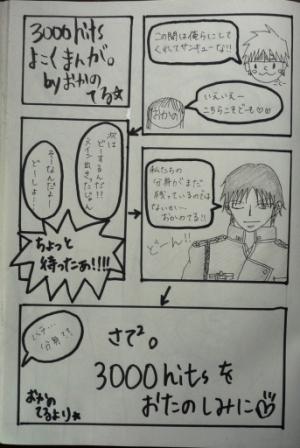 3000hits
よこくまんが。
byおかの
てる☆
この間は俺らにこして
くれてサンキューな!!
いえいえー
こちらこそどーも♡♡
おかの
次は
どーするんだ!?
メイン出きったじゃん
そーなんだよ〜
どーしよ…
ちょっと
待ったぁ!!!!
私たちの
分身がまだ
残っているのでは
ないかい
おかのてる!!
どーん!!
ハテ…
分身??
さて²。
3000hitsを
おたのしみに♡
おかの
てるより☆